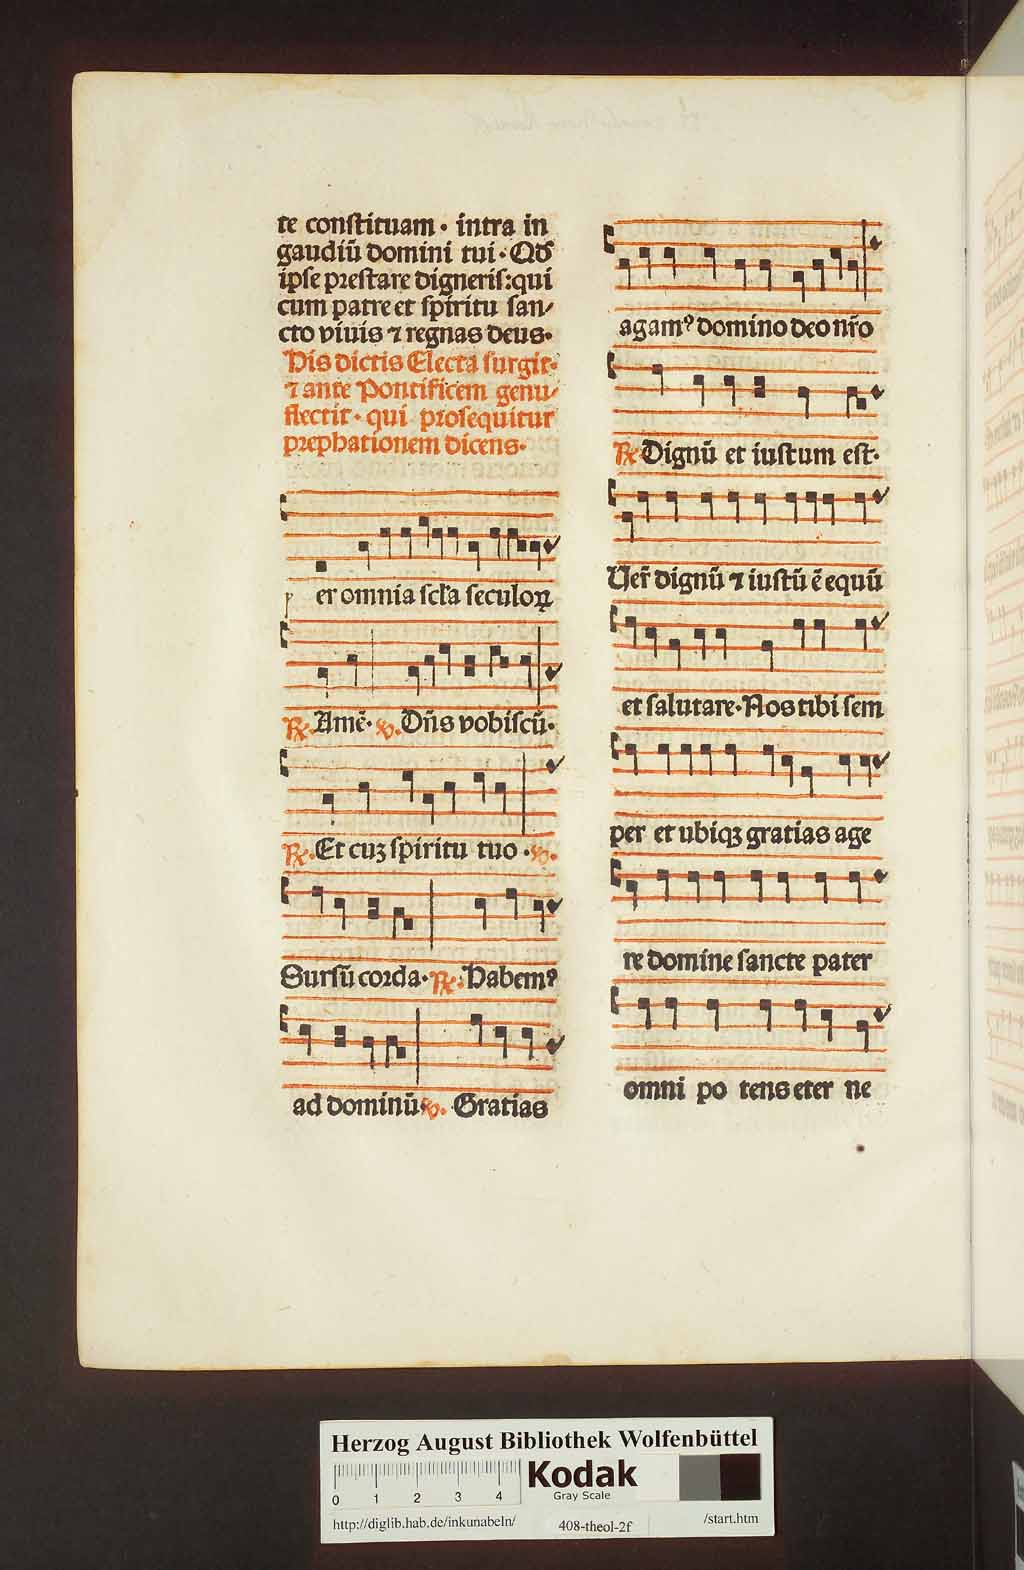 te constituam · intra in
gaudiū domini tui · Qđ
ipse prestare digneris: qui
cum patre et spiritu san⸗
cto viuis ⁊ regnas deus·
His dictis Electa surgit·
⁊ ante Pontificem genu⸗
flectit · qui prosequitur
prephationem dicens·
p er omnia scľa seculoꝝ
℟. Amē· ℣. Dn̄s vobiscū·
℟. Et cuꝫ spiritu tuo · ℣.
Sursū corda· ℟. Habemꝰ
ad dominū ℣. Gratias
agamꝰ domino deo nr̄o
℟ Dignū et iustum est·
Uer̄ dignū ⁊ iustū ē equū
et salutare· Nos tibi sem
per et ubiqꝫ gratias age
re domine sancte pater
omni po tens eter ne
Herzog August Bibliothek Wolfenbüttel
0 1 2 3 4
Kodak
Gray Scale
http://diglib.hab.de/inkunabeln/ 408-theol-2f /start.htm